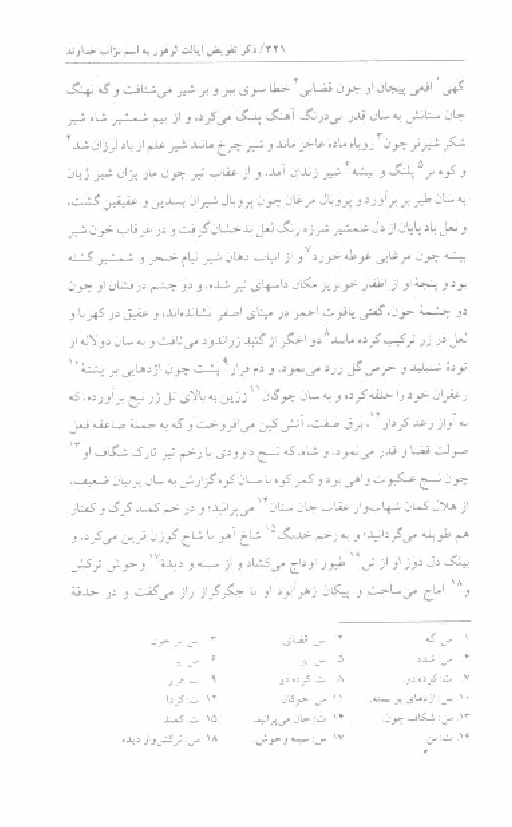 ۲۲۱/ ذکر تفویض ایالت لوهور به اسم نوّاب خداوند
گهی۱ افعی پیچان او چون قضایی۲ خطا سوی ببر و بر شیر می‌شتافت و گه نهنگ
جان ستانش به سان قدر بی‌درنگ آهنگ پلنگ می‌کرد، و از بیم شمشیر شاه شیر
شکر شیر نر چون۳ روباه ماده عاجز ماند و شیر چرخ مانند شیر علم از باد لرزان شد۴
و کوه بر۵ پلنگ و بیشه۶ شیر زندان آمد، و از عقاب تیر چون مار پرّان شیر ژیان
به سان طیر پر برآورد و پر و بال مرغان چون پر و بال شیران بسدین و عقیقین گشت،
و نعل باد پایان از دل شمشیر شرزه رنگ لعل بدخشان گرفت و در غرقاب خون شیر
بیشه چون مرغابی غوطه خورد۷ و از انیاب دهان شیر نیام خنجر و شمشیر گشته
بود و پنجهٔ او از اظفار خونریز مکان داسهای تیز شده، و دو چشم درفشان او چون
دو چشمهٔ خون، گفتی یاقوت احمر در مینای اصفر نشانده‌اند، و عقیق در کهربا و
لعل در زر ترکیب کرده مانند۸ دو اخگر از گنبد زراندود می‌تافت و به سان دو لاله از
تودهٔ شنبلید و خرمن گل زرد می‌نمود، و دم فراز۹ پشت چون اژدهایی بر پشتهٔ۱۰
زعفران خود را حلقه کرده و به سان چوگان۱۱ زرّین به بالای تل زر تیج برآورده، که
به آواز رعد کردار۱۲، برق صفت، آتش کین می‌افروخت و گه به حملهٔ صاعقه فعل
صولت قضا و قدر می‌نمود، و شاه که نسج دوودی با زخم تیر تارک شگاف او۱۳
چون نسج عنکبوت واهی بود و کمر کوه با سنان کوه گزارش به سان پرنیان ضعیف،
از هلال کمان شهاب‌وار عقاب جان ستان۱۴ می‌پرانید؛ و در خم کمند گرگ و کفتار
هم طویله می‌گردانید؛ و به زخم خدنگ۱۵ شاخ آهو با شاخ گوزن قرین می‌کرد، و
بیلک دل دوز او از تن۱۶ طیور اوداج می‌گشاد و از سینه و دیدهٔ۱۷ وحوش ترکش
و۱۸ آماج می‌ساخت و پیکان زهرآلود او با جگر گراز راز می‌گفت و در حدقهٔ
۱. س: که ۲. س: قضای. ۳. س: بر خون
۴. س: شده. ۵. س: پر ۶. س: پر
۷. ت: کرده در. ۸. ت: کرده در ۹. ت: قرار
۱۰. س: اژدهای پر پشته. ۱۱. س: جوگان ۱۲. ت: کردا
۱۳. س: شکاف چون. ۱۴. ت: جان می‌پرانید. ۱۵. ت: کمند
۱۶. ت: بن ۱۷. س: سینه وحوش. ۱۸. س: ترکش‌وار دیده